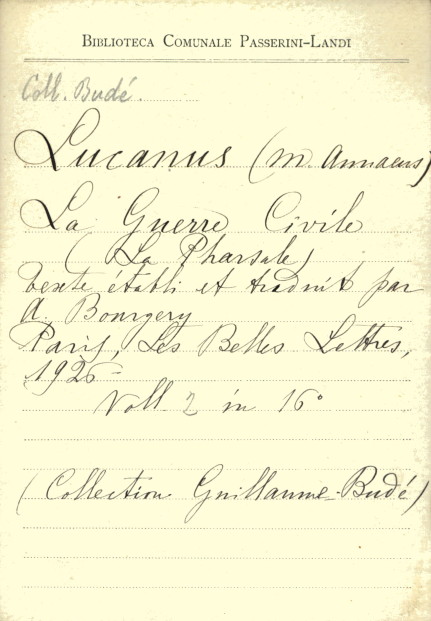 BIBLIOTECA COMUNALE PASSERINI-LANDI
Coll. Budé.
Lucanus (M. Annaeus)
La Guerre Civile
(La Pharsale)
texte établi et traduit par
A. Bourgery
Paris, Les Belles Lettres,
1926
Voll. 2 in 16°
(Collection Guillaume-Budé)